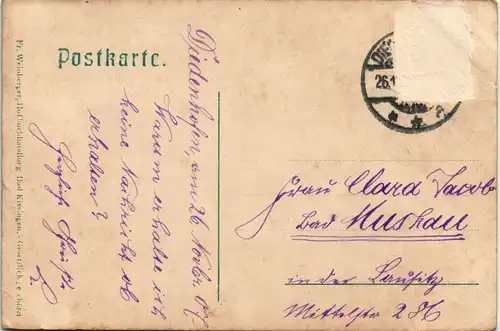 Postkarte.
Diedenhofen, am 26. Novbr. 07
Warum erhalte ich
keine Nachricht ob
erhalten?
Herzlich Grüße
Frau Clara Jacob
Bad Muskau
in der Lausitz
Mittelstr 28
26.1
Fr. Weinberger, Hofbuchhandlung Bad Kissingen. - Gesetzlich geschützt